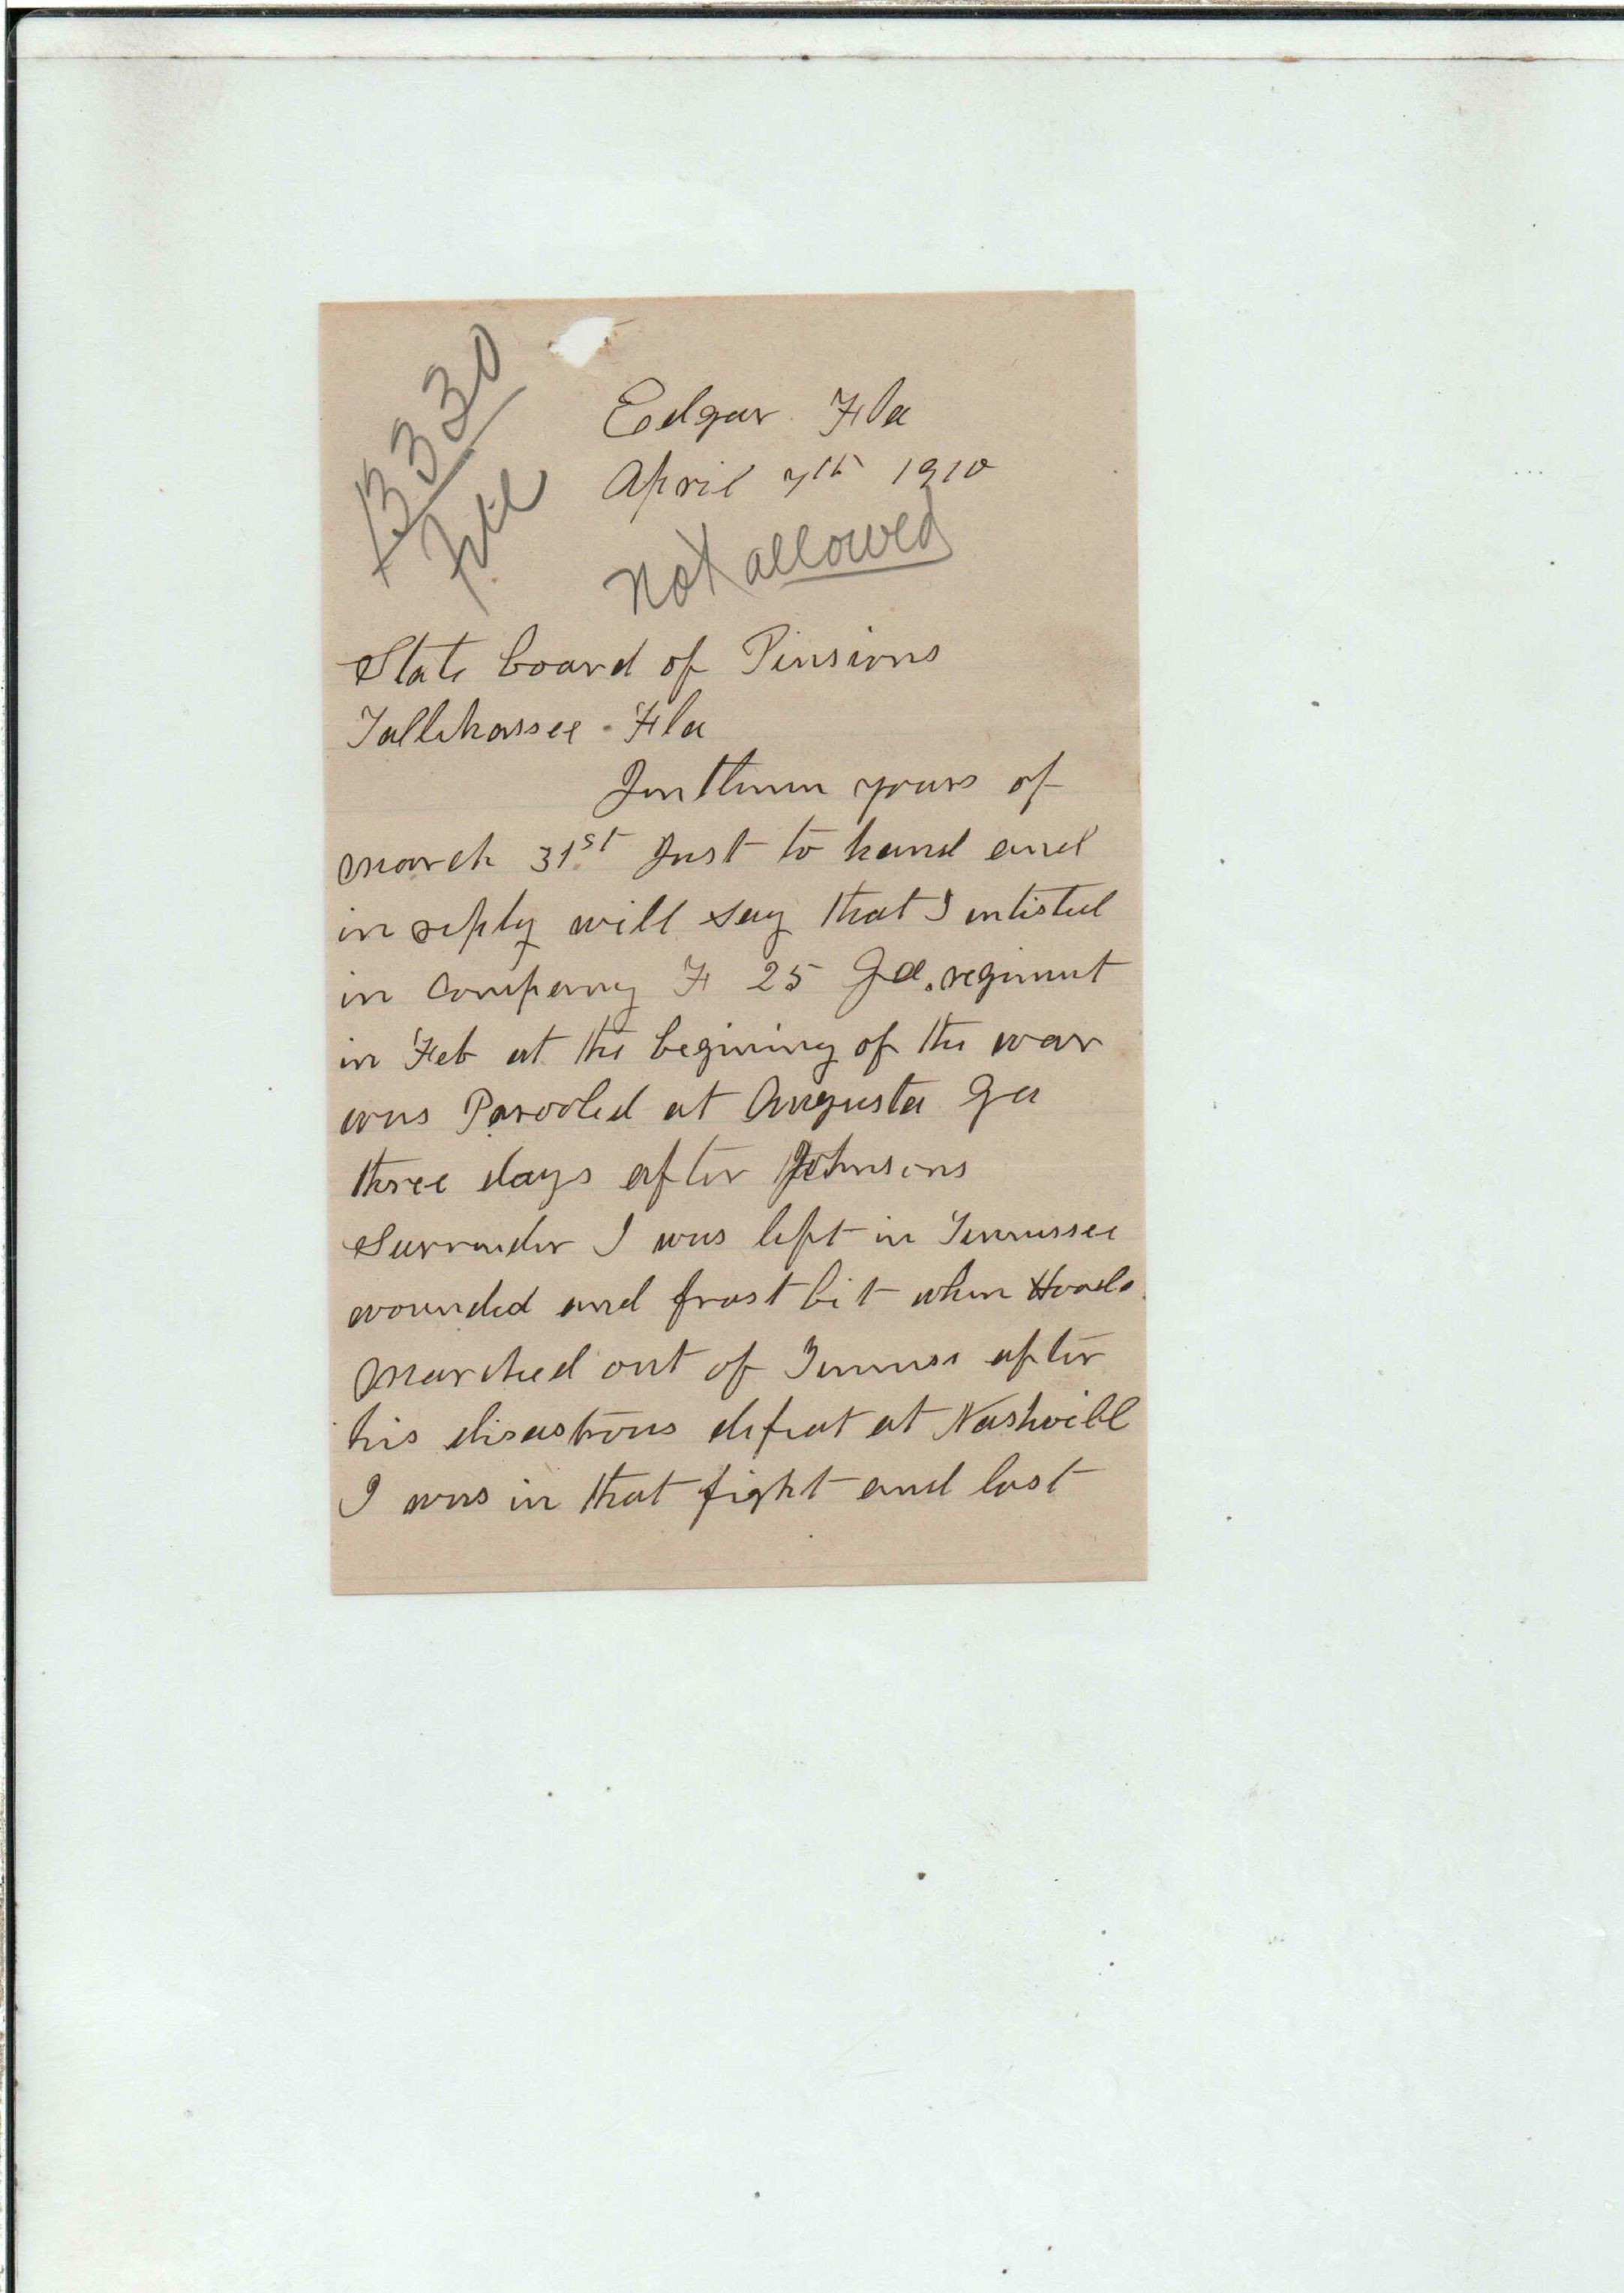 13330
File
Edgar Fla
April 7th 1910
Not allowed
State board of Pinsions
Tallihassee - Fla
Jentlemen yours of
March 31st Just to hand and
in reply will say that I intisted
in Company F 25 Ga. regiment
in Feb at the begining of the war
was Parooled at Augusta Ga
three days after Johnsons
Surrender I was left in Tennessee
wounded and frost bit when Hoods
Marched out of Tenness after
his disastrous defeat at Nashvill
I was in that fight and lost